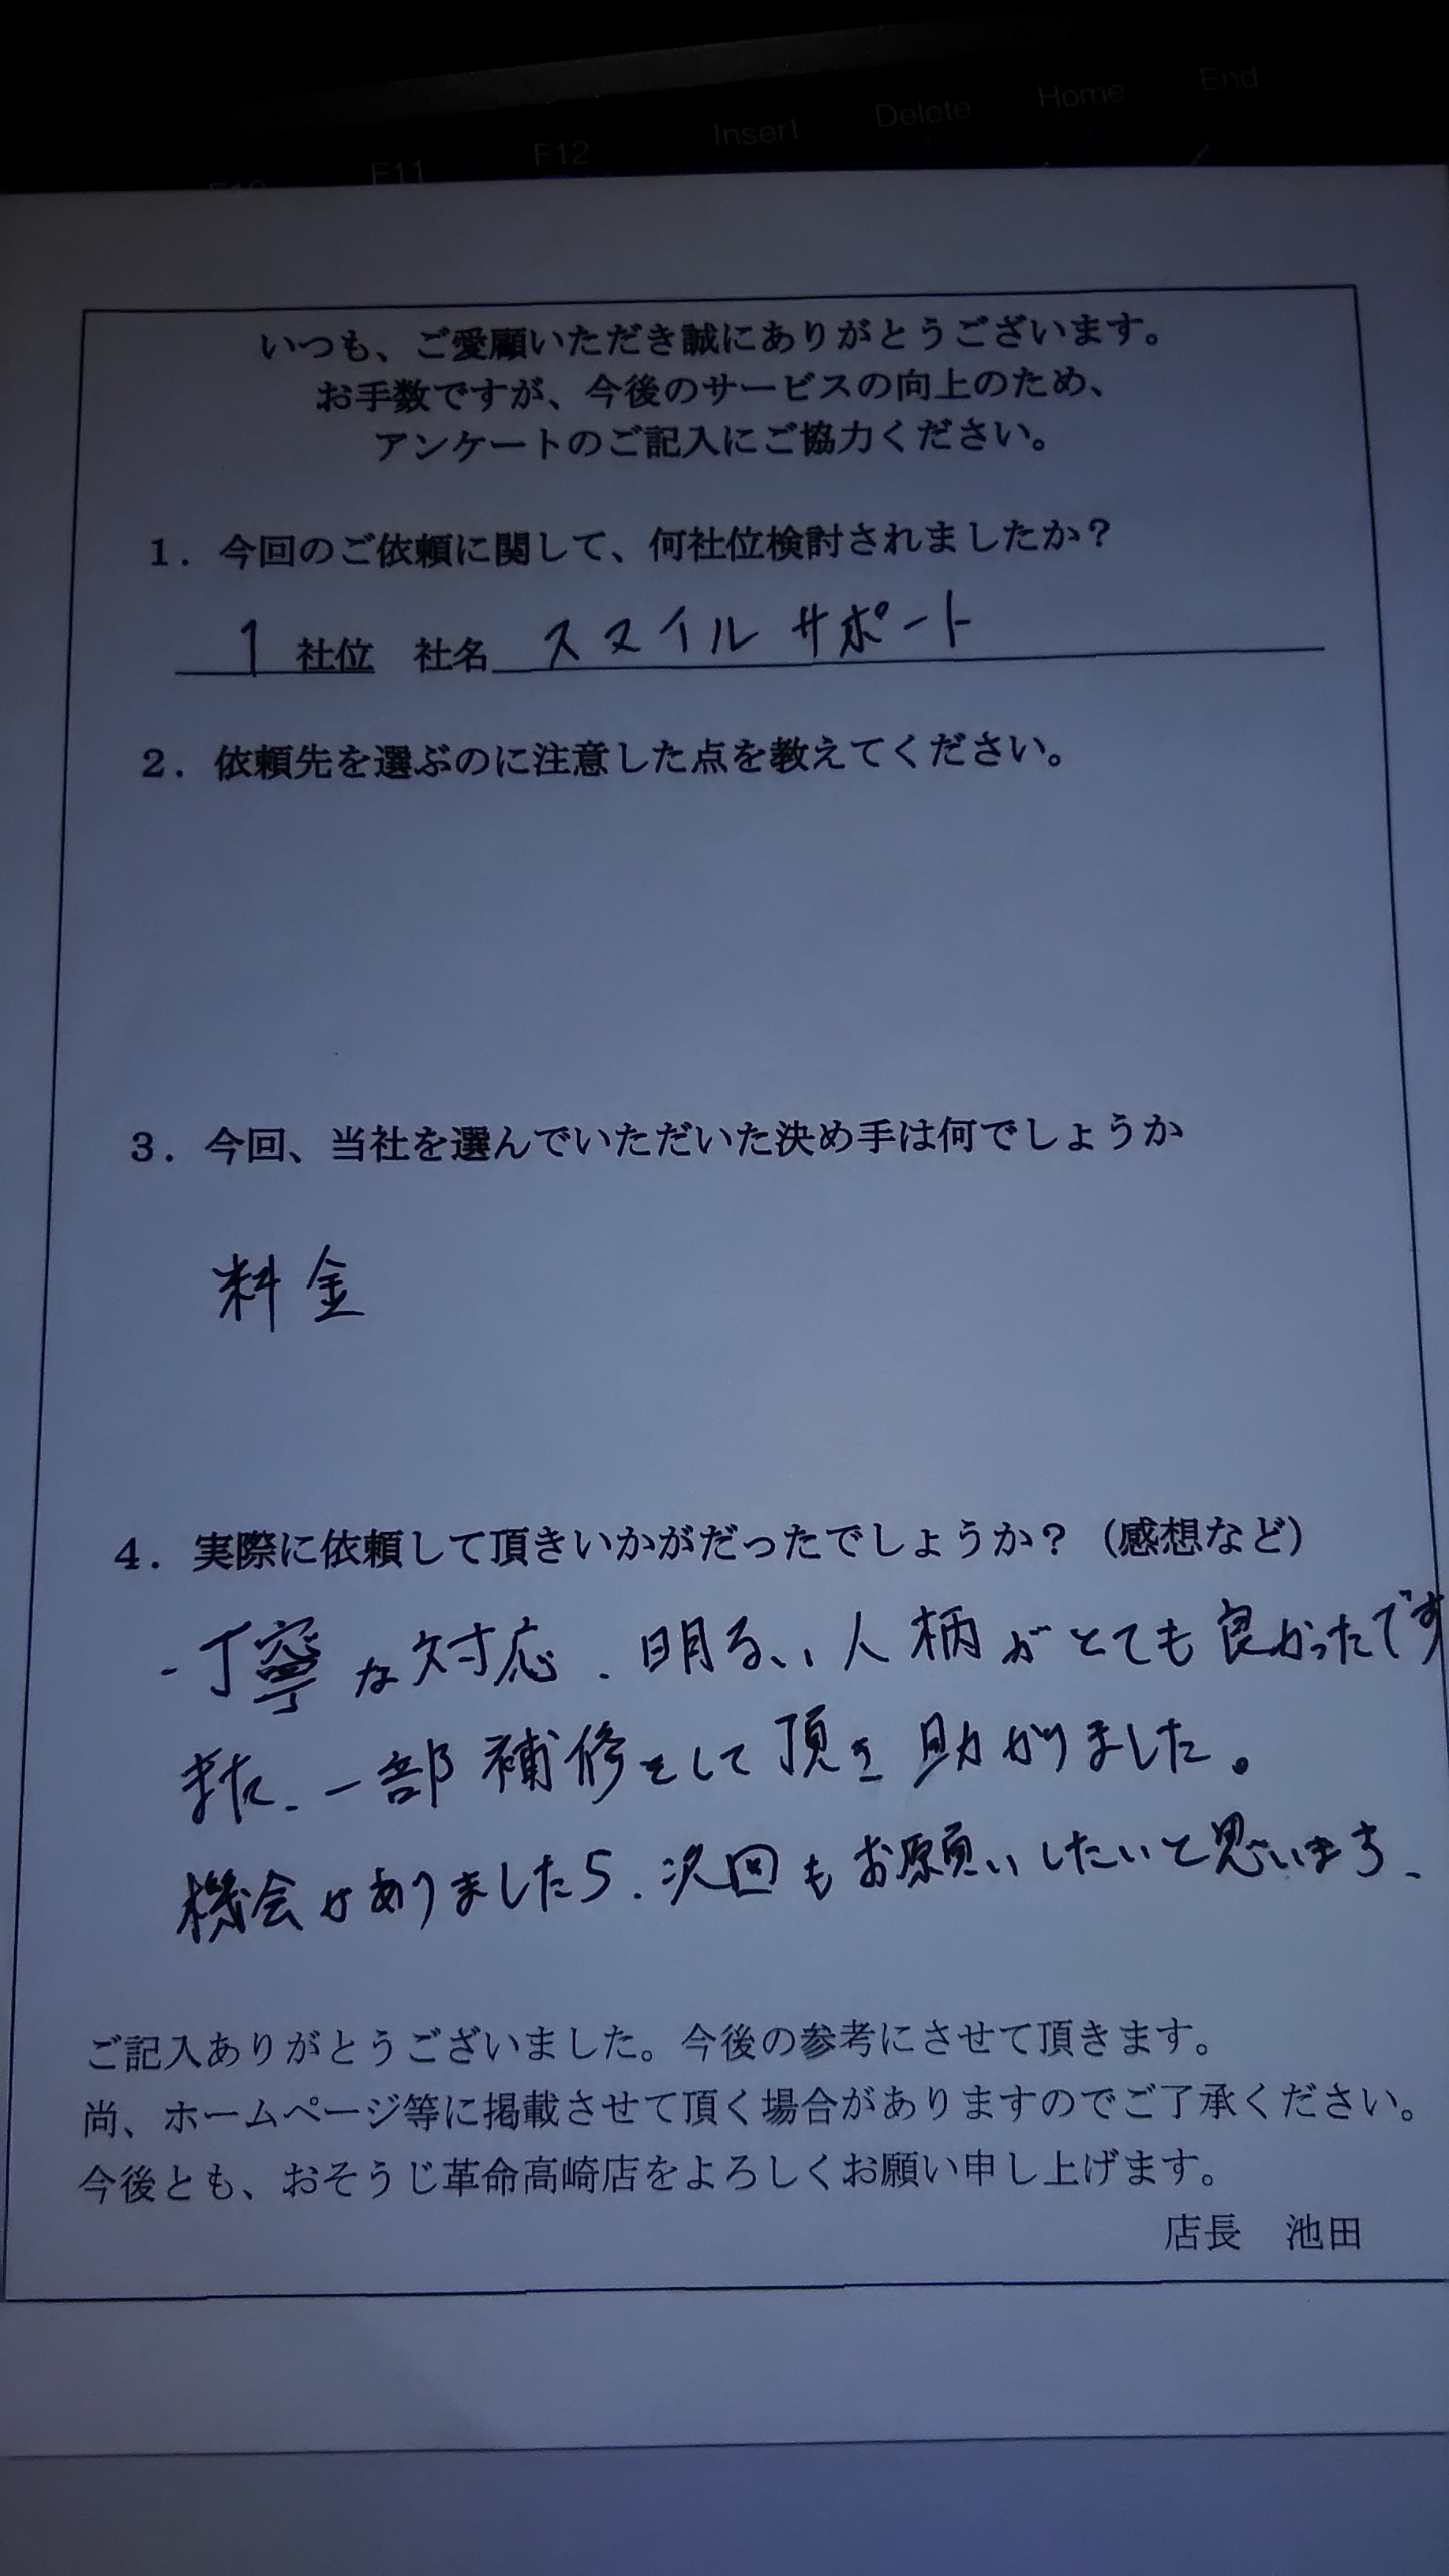 End
Home
Delete
Insert
F12
F11
F10
いつも、ご愛顧いただき誠にありがとうございます。
お手数ですが、今後のサービスの向上のため、
アンケートのご記入にご協力ください。
1．今回のご依頼に関して、何社位検討されましたか？
1 社位　社名 スマイルサポート
2．依頼先を選ぶのに注意した点を教えてください。
3．今回、当社を選んでいただいた決め手は何でしょうか
料金
4．実際に依頼して頂きいかがだったでしょうか？（感想など）
・丁寧な対応、明るい人柄がとても良かったです
また、一部補修をして頂き助かりました。
機会がありましたら、次回もお願いしたいと思います、
ご記入ありがとうございました。今後の参考にさせて頂きます。
尚、ホームページ等に掲載させて頂く場合がありますのでご了承ください。
今後とも、おそうじ革命高崎店をよろしくお願い申し上げます。
店長　池田